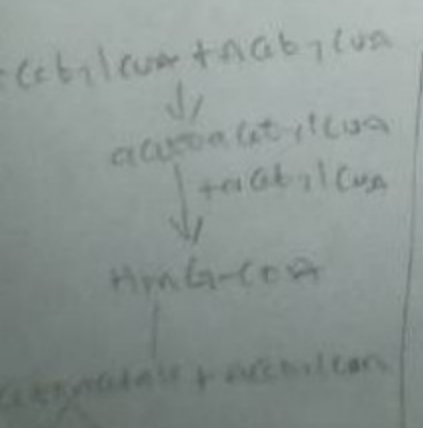 acetylCoA + acetylCoA
acetoacetylCoA
+acetylCoA
HMG-CoA
acetoacetate + acetylCoA